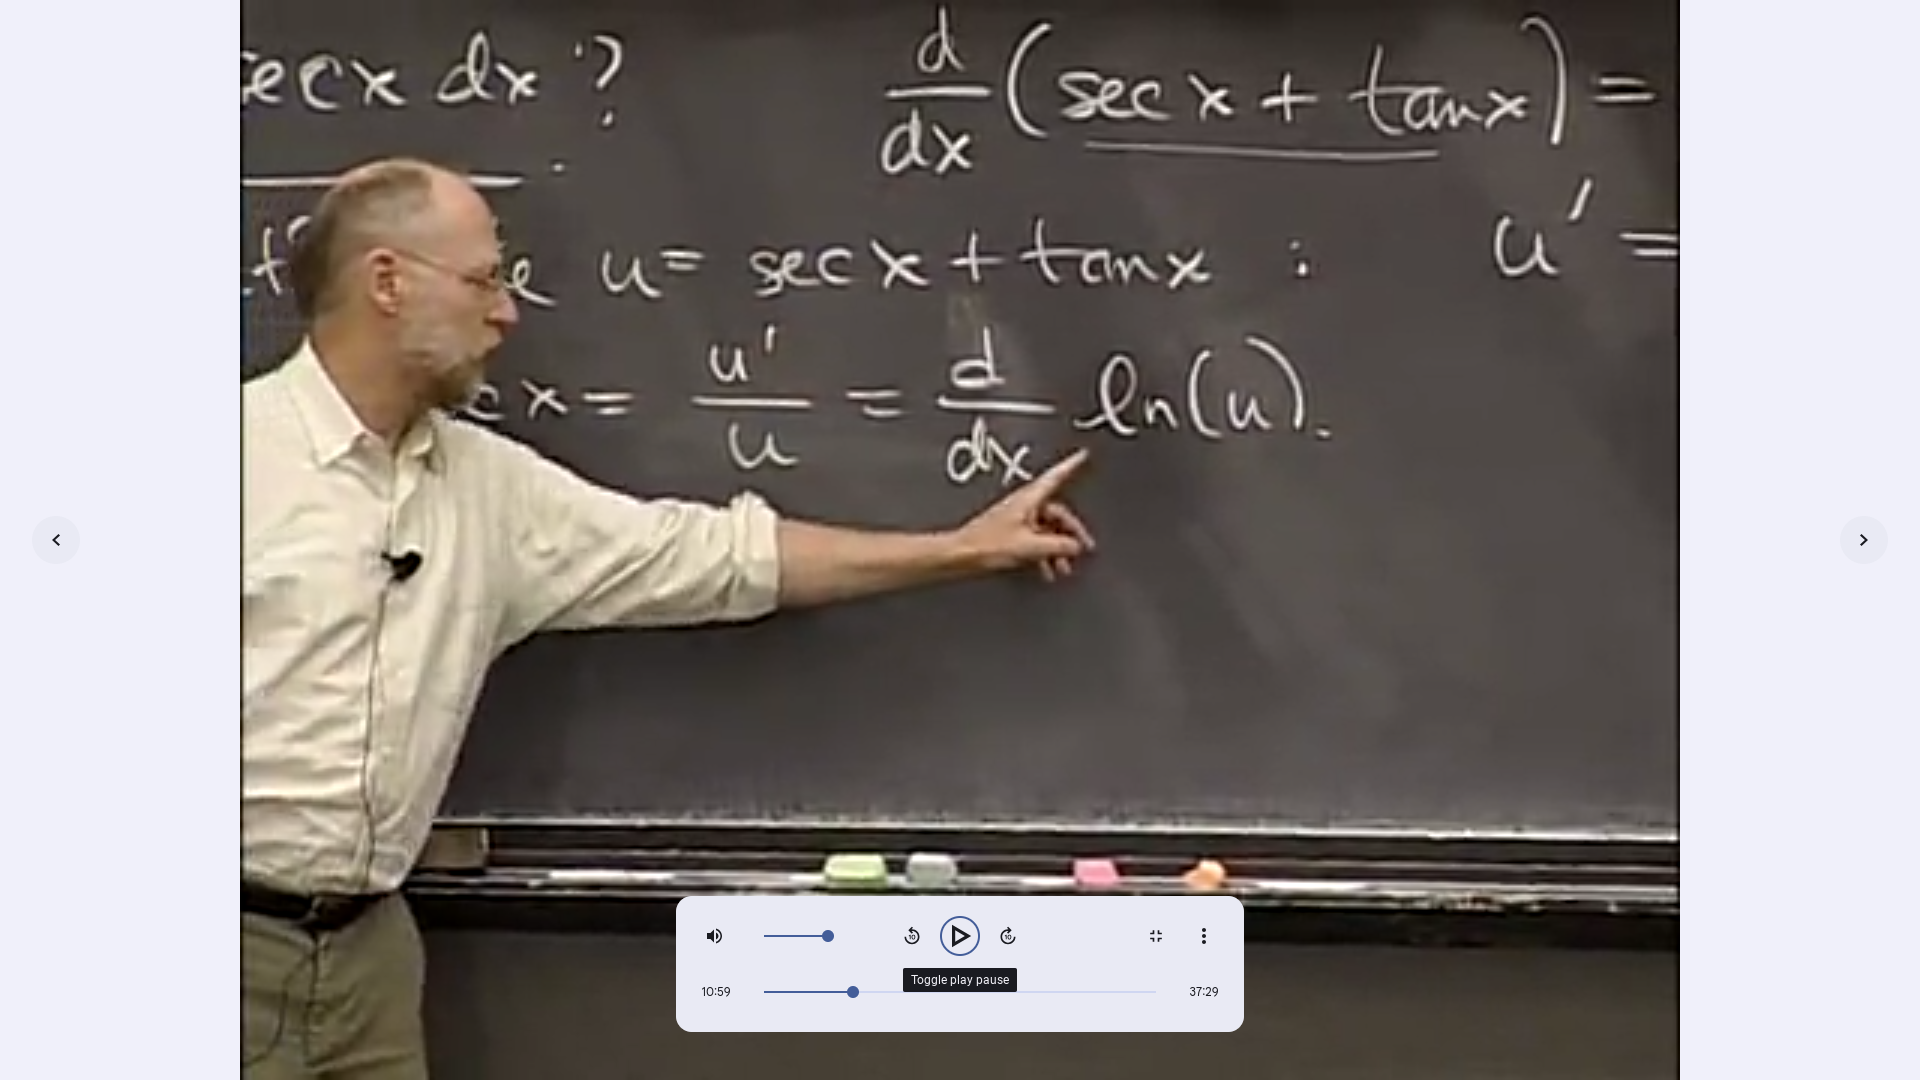 secx dx ?
d/dx (sec x + tanx) =
u = sec x + tanx : u' =
x = u'/u = d/dx ln(u).
10
10
Toggle play pause
10:59
37:29